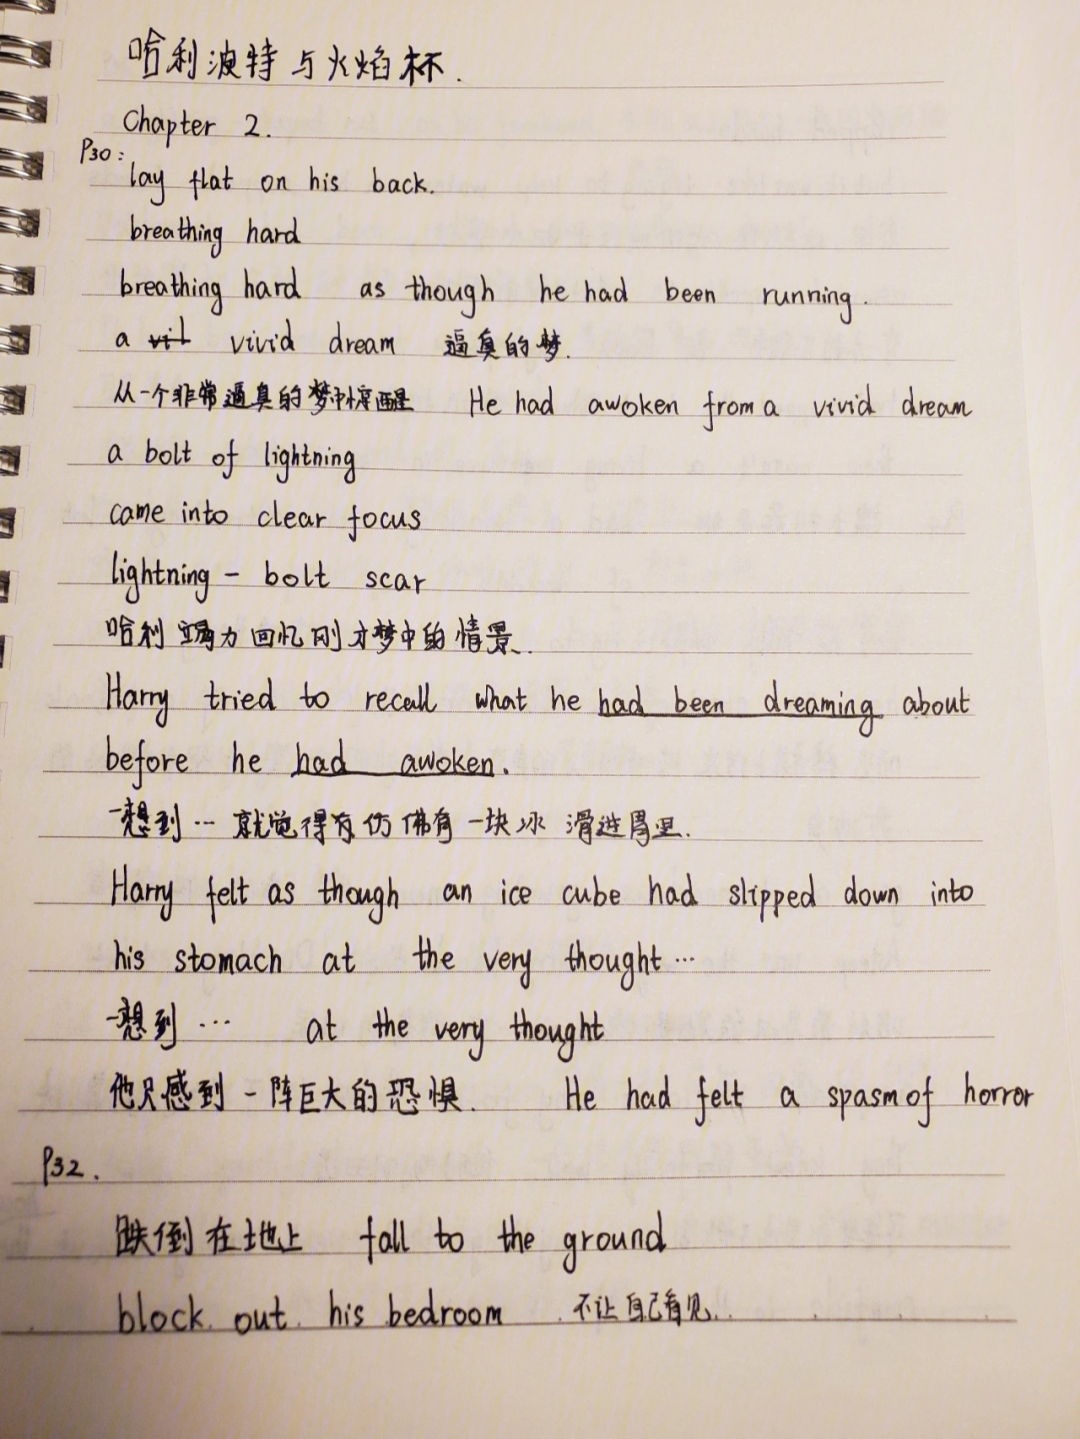 哈利波特与火焰杯.
Chapter 2.
P30:
lay flat on his back.
breathing hard
breathing hard as though he had been running.
a vil vivid dream 逼真的梦.
从一个非常逼真的梦中惊醒 He had awoken from a vivid dream
a bolt of lightning
came into clear focus
lightning - bolt scar
哈利竭力回忆刚才梦中的情景.
Harry tried to recall what he had been dreaming about
before he had awoken.
一想到… 就觉得有仿佛有一块冰滑进胃里.
Harry felt as though an ice cube had slipped down into
his stomach at the very thought…
一想到… at the very thought
他只感到一阵巨大的恐惧. He had felt a spasm of horror
P32.
跌倒在地上 fall to the ground
block out his bedroom 不让自己看见..